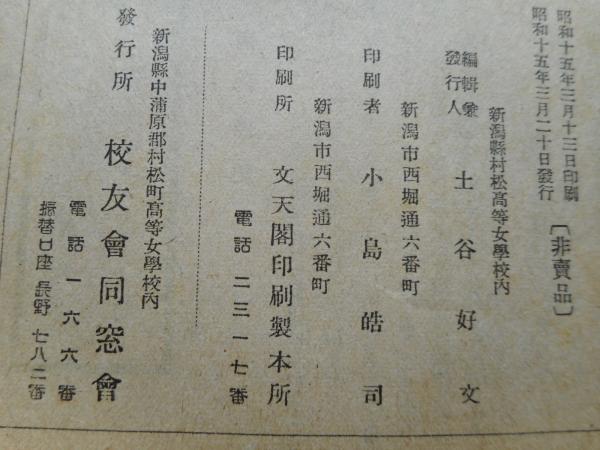 昭和十五年三月十三日印刷
昭和十五年三月二十日發行
〔非賣品〕
新潟縣村松高等女學校內
編輯兼
發行人
土谷好文
新潟市西堀通六番町
印刷者 小島皓司
新潟市西堀通六番町
印刷所 文天閣印刷製本所
電話二三一七番
新潟縣中蒲原郡村松町高等女學校內
發行所 校友會同窓會
電話一六六番
振替口座長野七八二番